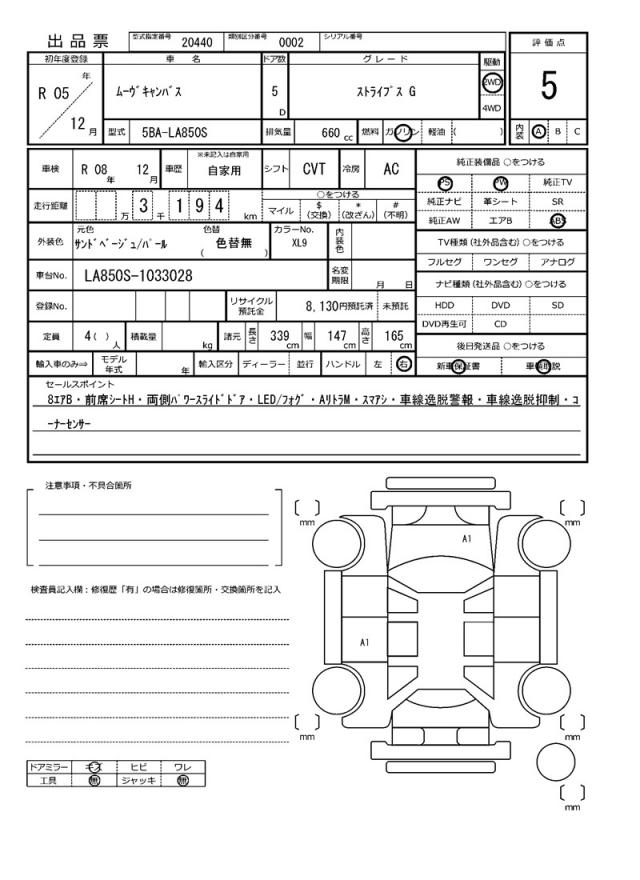 出品票
型式指定番号 20440 類別区分番号 0002 シリアル番号
初年度登録 車名 ドア数 グレード 駆動 評価点
R 05 年 12 月 ムーヴキャンバス 5 D ストライプス G 2WD 4WD 5
型式 5BA-LA850S 排気量 660 cc 燃料 ガソリン 軽油 ( ) 内装 A B C
車検 R 08 年 12 月 車歴 ※未記入は自家用 自家用 シフト CVT 冷房 AC
走行距離 万 3 千 1 9 4 km
○をつける
マイル $ (交換) * (改ざん) # (不明)
外装色 元色 サンドベージュ/パール 色替 ( 色替無 ) カラーNo. XL9 内装色
車台No. LA850S-1033028 名変期限 月 日
登録No. リサイクル預託金 8,130円預託済 未預託
定員 4( ) 人 積載量 kg 諸元 長さ 339 cm 幅 147 cm 高さ 165 cm
輸入車のみ⇒ モデル年式 年 輸入区分 ディーラー 並行 ハンドル 左 右
純正装備品 ○をつける
PS PW 純正TV
純正ナビ 革シート SR
純正AW エアB ABS
TV種類 (社外品含む) ○をつける
フルセグ ワンセグ アナログ
ナビ種類 (社外品含む) ○をつける
HDD DVD SD
DVD再生可 CD
後日発送品 ○をつける
新車保証書 車輌取説
セールスポイント
8エアB・前席シートH・両側パワースライドドア・LED/フォグ・AリトラM・スマアシ・車線逸脱警報・車線逸脱抑制・コ
ーナーセンサー
注意事項・不具合箇所
検査員記入欄：修復歴「有」の場合は修復箇所・交換箇所を記入
ドアミラー キズ ヒビ ワレ
工具 無 ジャッキ 無
mm
mm
A1
A1
mm
mm
mm